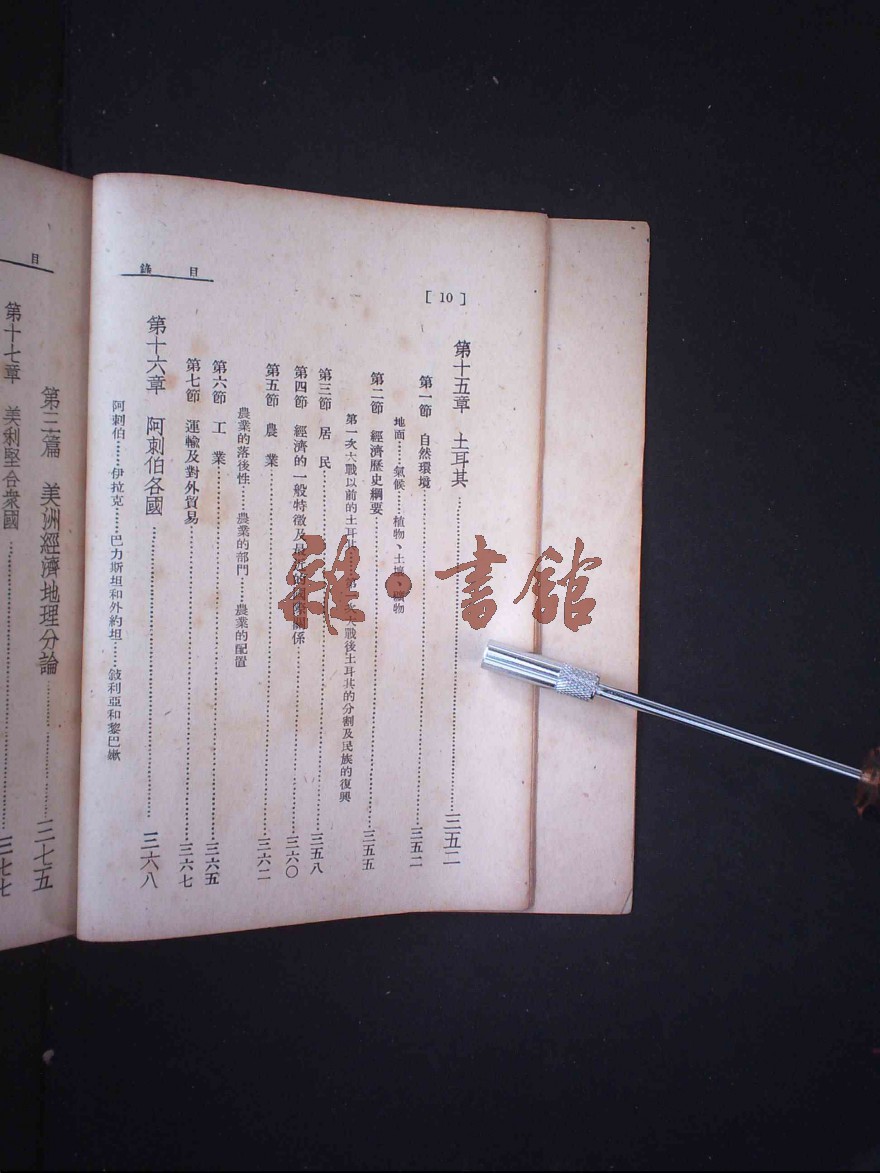 目　錄
[ 10 ]
第十五章　土耳其……三五二
第一節　自然環境……三五二
地面……氣候……植物、土壤、礦物
第二節　經濟歷史綱要……三五五
第一次大戰以前的土耳其……第一次大戰後土耳其的分割及民族的復興
第三節　居　民……三五八
第四節　經濟的一般特徵及最近的國際關係……三六〇
第五節　農　業……三六二
農業的落後性……農業的部門……農業的配置
第六節　工　業……三六五
第七節　運輸及對外貿易……三六七
第十六章　阿剌伯各國……三六八
阿剌伯……伊拉克……巴力斯坦和外約坦……敍利亞和黎巴嫩
目
第三篇　美洲經濟地理分論……三七五
第十七章　美利堅合衆國……三七七
雜·書館